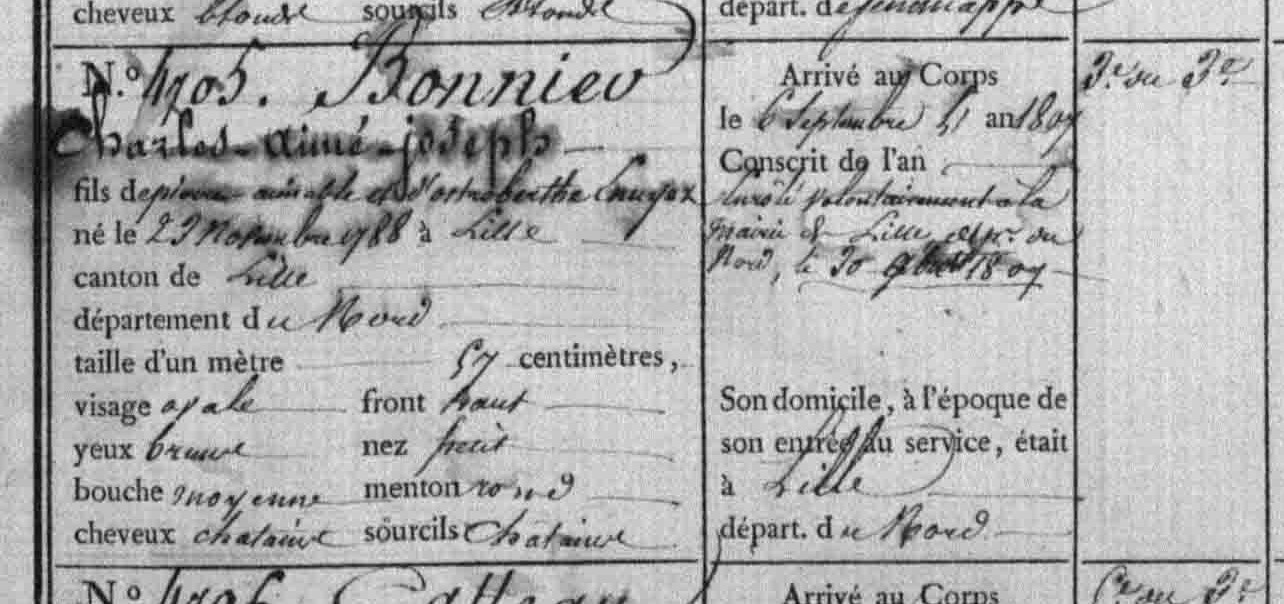 cheveux blonds sourcils blonds
départ. d
N.º 4705. Bonnier
Charles-aimé-joseph
fils de pierre aimable et d'ostroberthe
né le 23 Novembre 1788 à Lille
canton de Lille
département du Nord
taille d'un mètre 57 centimètres,
visage ovale front haut
yeux bruns nez petit
bouche moyenne menton rond
cheveux chatains sourcils Chatains
Arrivé au Corps
le 6 Septembre an 1807
Conscrit de l'an
Enrôlé volontairement à la
Mairie de Lille dépt. du
Nord, le 30 1807
Son domicile, à l'époque de
son entrée au service, était
à Lille
départ. du Nord
3.e du 3.e
N.º 4706
Arrivé au Corps
du 3.e